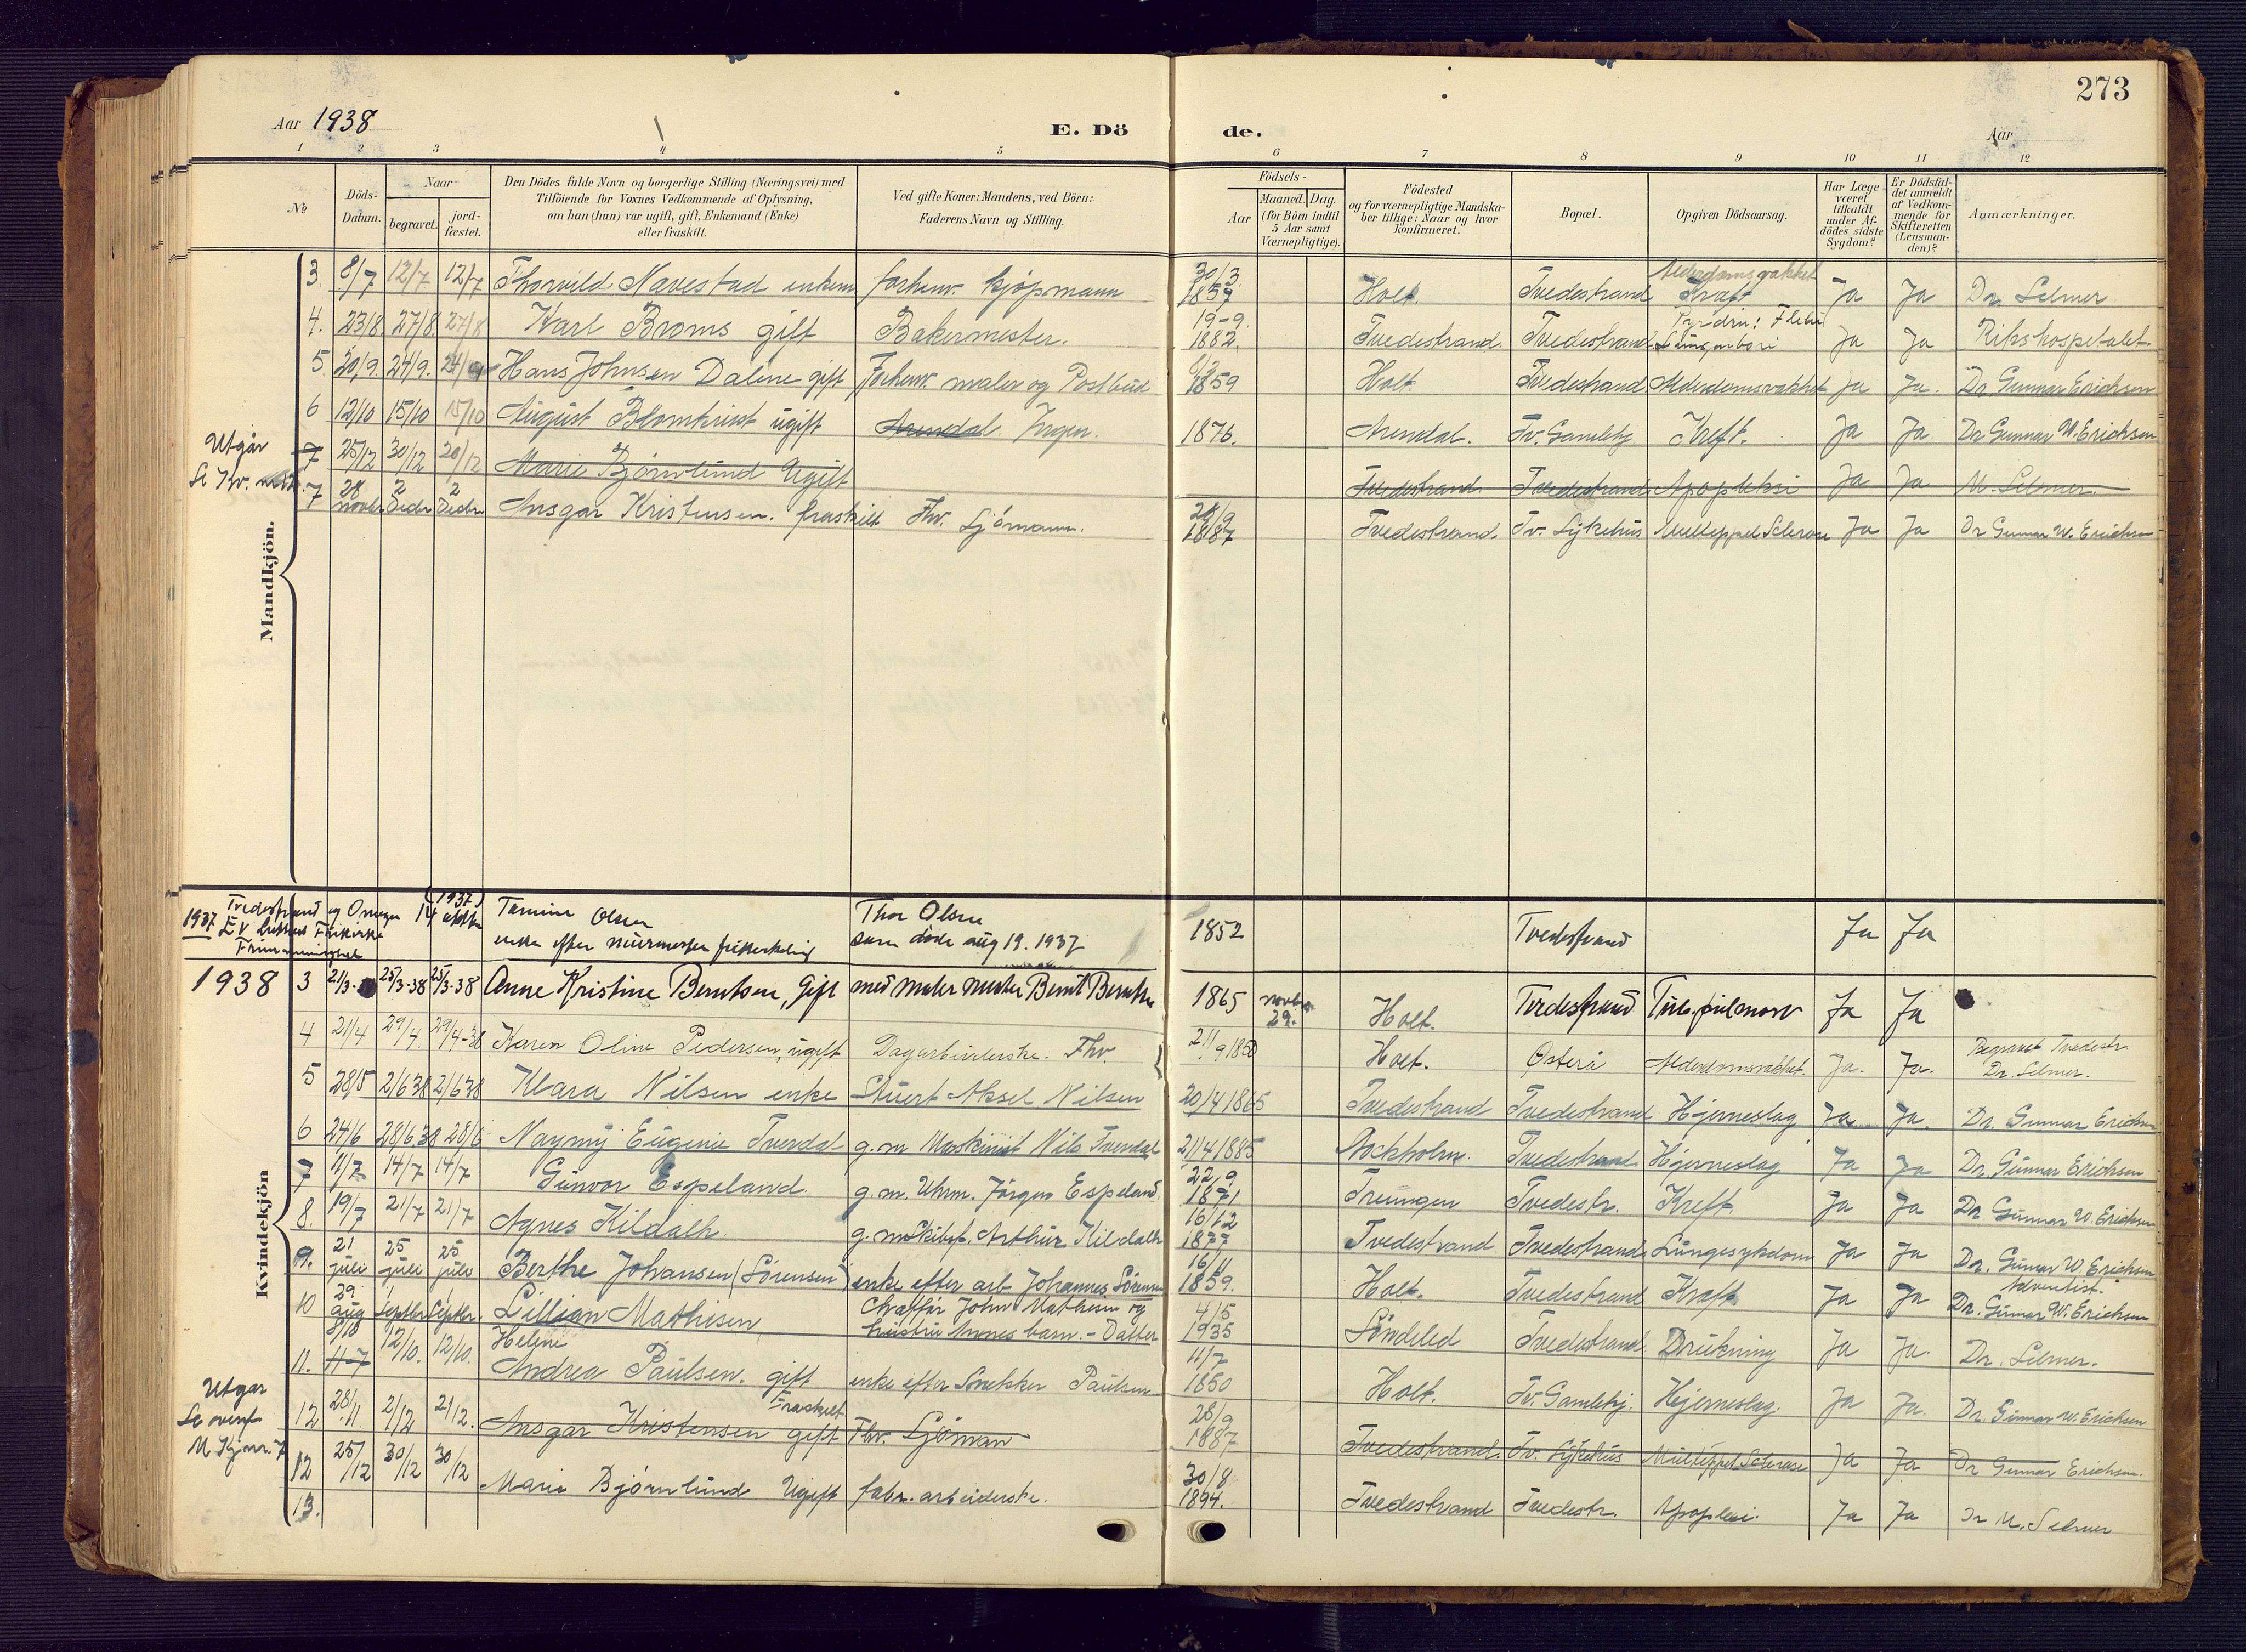 273
Aar 1938
E. Dö de.
Aar
1 2 3 4 5 6 7 8 9 10 11 12
No
Döds-Datum.
Naar
begravet.
jord-fæstet.
Den Dödes fulde Navn og borgerlige Stilling (Næringsvei) med
Tilföiende for Voxnes Vedkommende af Oplysning,
om han (hun) var ugift, gift, Enkemand (Enke)
eller fraskilt.
Ved gifte Koner: Mandens, ved Börn:
Faderens Navn og Stilling.
Födsels-
Aar
Maaned. Dag.
(for Börn indtil
5 Aar samt
Værnepligtige).
Födested
og for værnepligtige Mandska-
ber tillige: Naar og hvor
konfirmeret.
Bopæl.
Opgiven Dödsaarsag.
Har Læge
været
tilkaldt
under Af-
dödes sidste
Sygdom?
Er Dödsfal-
det anmeldt
af Vedkom-
mende for
Skifteretten
(Lensman-
den)?
Anmærkninger.
Mandkjön.
3. 8/7 12/7 12/7 Thorvild Navestad enkem forhenv. kjøpmann 30/3 1857 Holt. Tvedestrand Alderdomsvakhet Kreft Ja Ja Dr. Selmer
4. 23/8 27/8 27/8 Karl Broms gift Bakermester. 19-9 1882. Tvedestrand. Tvedestrand Ja Ja Rikshospitalet.
5. 20/9. 24/9. 24/9 Hans Johnsen Dalene gift Forhenv. maler og Postbud 1859 Holt. Tvedestrand Alderdomsvakhet Ja Ja. Dr Gunnar Erichsen
6 12/10 15/10 15/10 August Blomkvist ugift Arendal. Ingen. 1876. Arendal. Tv. Gamlehj Kreft. Ja Ja Dr Gunnar W. Erichsen
Utgår
7 25/12 30/12 Marie Bjørnlund Ugift Tvedestrand. Tvedestrand Apopleksi Ja Ja M. Selmer.
7 28 novbr 2 Decbr 2 Decbr Ansgar Kristensen. fraskilt Fhv. Sjömann. 28/9 1887 Tvedestrand. Tv. Sykehus Multippel Sclerose Ja Ja Dr Gunnar W. Erichsen
1937 Tvedestrand og Omegn
Ev Luthers Frikirke
Frimenighet
(1937)
Tomine Olsen
enke efter murmester
Thor Olsen
som døde aug 19. 1937
1852 Tvedestrand Ja Ja
Kvindekjön
1938 3 21/3 25/3-38 25/3-38 Anne Kristine Berntsen, gift med maler mester Bernt Berntsen 1865 novbr 29. Holt. Tvedestrand Tub. pulmon Ja Ja
4 21/4 29/4. 29/4-38 Karen Oline Pedersen, ugift Dagarbeiderske. Fhv. 21/9 1850 Holt. Østerå Alderdomsvakhet. Ja. Ja. Begravet Tvedestr. Dr. Selmer.
5 28/5 2/6 38 2/6 38 Klara Nilsen enke Stuert Aksel Nilsen 20/4 1865 Tvedestrand Tvedestrand Hjerneslag Ja Ja. Dr. Gunnar Erichsen
6 24/6 28/6 38 28/6 Naymy Eugenie Tverdal g.m Maskinist Nils Tverdal 21/4 1885 Tvedestrand Hjerneslag Ja Ja Dr. Gunnar Erichsen
7 11/7 14/7 14/7 Gunvor Espeland. g.m. Uhrm. Jörgen Espeland. 22/9 1871 Treungen Tvedestr. Kreft. Ja Ja Dr Gunnar W. Erichsen
8. 19/7 21/7 21/7 Agnes Kildahl. g. m Skibsf. Arthur Kildahl 16/12 1877 Tvedestrand Tvedestrand Lungesykdom Ja Ja Dr. Gunnar W. Erichsen
9. 21 juli 25 juli 25 juli Berthe Johansen (Sörensen) enke efter arb. Johannes Sörensen 16/11 1859. Holt. Tvedestrand Kreft Ja Ja Adventist. Dr. Gunnar W. Erichsen
10 29 aug 1 Septbr 1 Septbr. Lillian Mathisen Chaffør John Mathisen og hustru barn. - Datter 4/5 1935 Søndeled Tvedestrand. Drukning Ja Ja. Dr. Selmer.
11. 11-7 12/10. 12/10. Helene Andrea Paulsen. gift enke efter Paulsen 11/7 1850 Holt. Tv. Gamlehj. Hjerneslag. Ja Ja Dr. Gunnar W. Erichsen
Utgår
Se overst
M Kjøn. 7
12 28/11 2/12 2/12. Ansgar Kristensen gift Fraskilt Fhv. Sjöman 28/9 1887 Tvedestrand. Tv. Sykehus Multippel Sclerose Ja Ja Dr Gunnar Erichsen.
12 25/12 30/12 30/12 Marie Bjørnlund Ugift fabr. arbeiderske. 30/8 1894. Tvedestrand Tvedestr. Apoplexi. Ja Ja Dr M. Selmer
13.